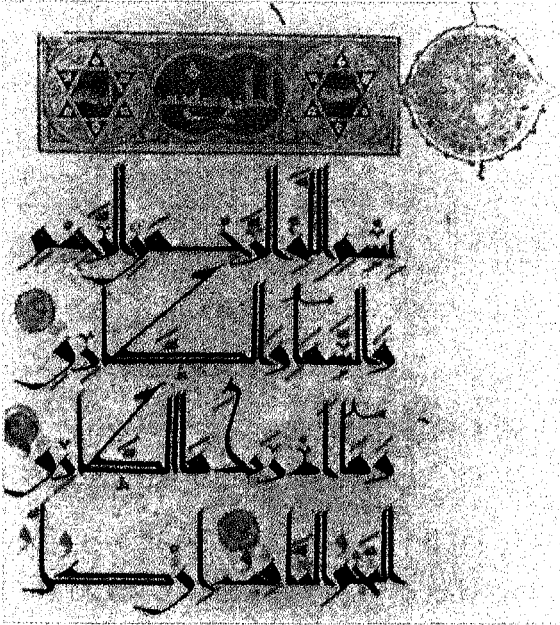 بِسْمِ اللَّهِ الرَّحْمَٰنِ الرَّحِيمِ
وَالسَّمَاءِ وَالطَّارِقِ
وَمَا أَدْرَىٰكَ مَا الطَّارِقُ
النَّجْمُ الثَّاقِبُ إِن كُلُّ